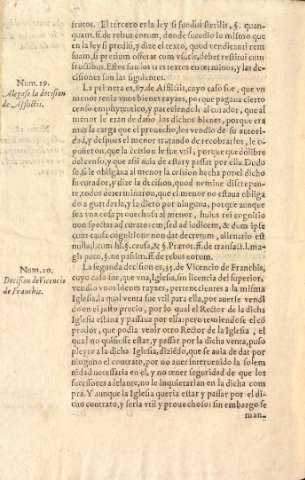 frutos. El tercero es la ley si fundus sterilis, §. quan-
quam. ff. de rebus eorum, donde sucedio lo mismo que
en la ley si predijs, y dize el texto, quod vendicari rem
suam, si pretium offerat cum vsuris, debet restitui cum
fructibus. Estos son los tres textos en terminos, y las de-
cisiones son las siguientes.
Num. 19.
Alegase la decision
de Afflictis.
La primera es, 87. de Afflictis, cuyo caso fue, que vn
menor tenia vnos bienes rayzes, por que pagaua cierto
censo emphyteutico, y pareciendole al curador, que al
menor le eran de daño los dichos bienes, porque era
mas la carga que el prouecho, los vendio de su autori-
dad, y despues el menor tratando de recobrarlos, le o-
pusieron, que la decision le fue vtil, porque que deliber
de censo, y que assi auia de estar y passar por ella. Dudo
se, si le obligaua al menor la cession hecha por el dicho
su curador, y dize la decision, quod nemine discrepan-
te, todos determinaron, que el menor no estaua obliga
do a guardarla, y la diero por ninguna, porque aunque
era vna cosa prouechosa al menor, huius rei cognitio
non spectat ad curatorem, sed ad iudicem, & dum ipse
cum causæ cognitione non dat decretum, alienatio est
nulla l. cum hi. §. causa, & §. Prætor. ff. de transact. l. ma-
gis puto, §. ne passim. ff. de rebus eorum.
Num. 20.
Decision de Vicencio
de Franchis.
La segunda decision es, 55. de Vicencio de Franchis,
cuyo caso fue, que vna, Iglesia, sin licencia del superior,
vendio vnos bienes rayzes, pertenecientes a la misma
Iglesia, la qual venta fue vtil para ella, por auerse vendi
do en el justo precio, por lo qual el Rector de la dicha
Iglesia estaua y passaua por ella: pero temiendose el có
prador, que podia venir otro Rector de la Iglesia, el
qual no quisiesse estar, y passar por la dicha venta, puso
pleyto a la dicha Iglesia, diziédo, que se auia de dar por
ninguno el contrato, por no auer interuenido la solem
nidad necessaria en el, y no tener seguridad de que los
successores adelante, no le inquietarian en la dicha com
pra. Y aunque la Iglesia queria estar y passar por el di-
cho contrato, y seria vtil y prouechoso: sin embargo se
man-